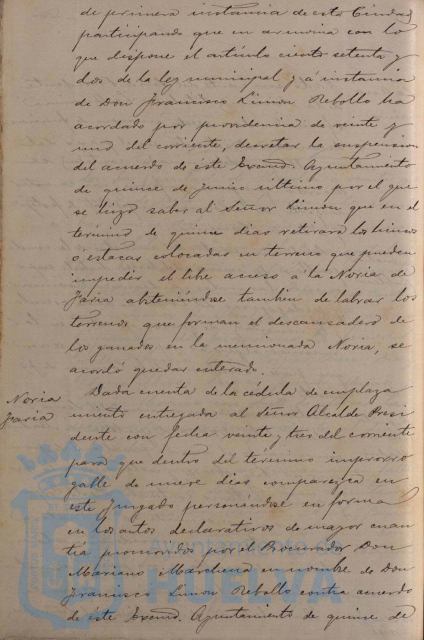 de primera instancia de esta Ciudad
participando que en armonia con lo
que dispone el artículo ciento setenta y
dos de la ley municipal y á instancia
de Don Francisco Limon Rebollo ha
acordado por providencia de veinte y
uno del corriente, decretar la suspension
del acuerdo de este Excmo. Ayuntamiento
de quince de Junio ultimo por el que
se hizo saber al Señor Limon que en el
término de quince dias retirara los hincos
o estacas colocadas en terreno que pueden
impedir el libre acceso á la Noria de
Jaria absteniendose tambien de labrar los
terrenos que forman el descansadero de
los ganados en la mencionada Noria, se
acordó quedar enterado.
Noria Jaria
Dada cuenta de la cédula de emplaza
miento entregada al Señor Alcalde Presi
dente con fecha veinte y tres del corriente
para que dentro del término improrro
gable de nueve dias comparezca en
este Juzgado personándose en forma
en los autos declarativos de mayor cuan
tía promovidos por el Procurador Don
Mariano Marchena en nombre de Don
Francisco Limon Rebollo contra acuerdo
de este Excmo. Ayuntamiento de quince de
Ayuntamiento de
HUELVA